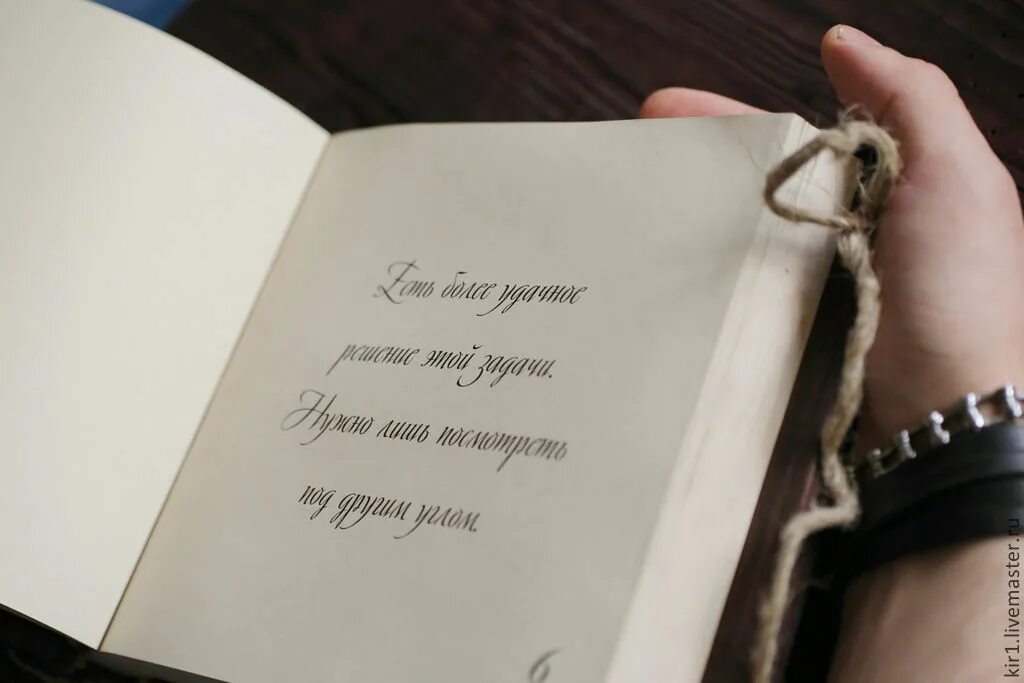 Есть более удачное
решение этой задачи.
Нужно лишь посмотреть
под другим углом.
6
kir1.livemaster.ru